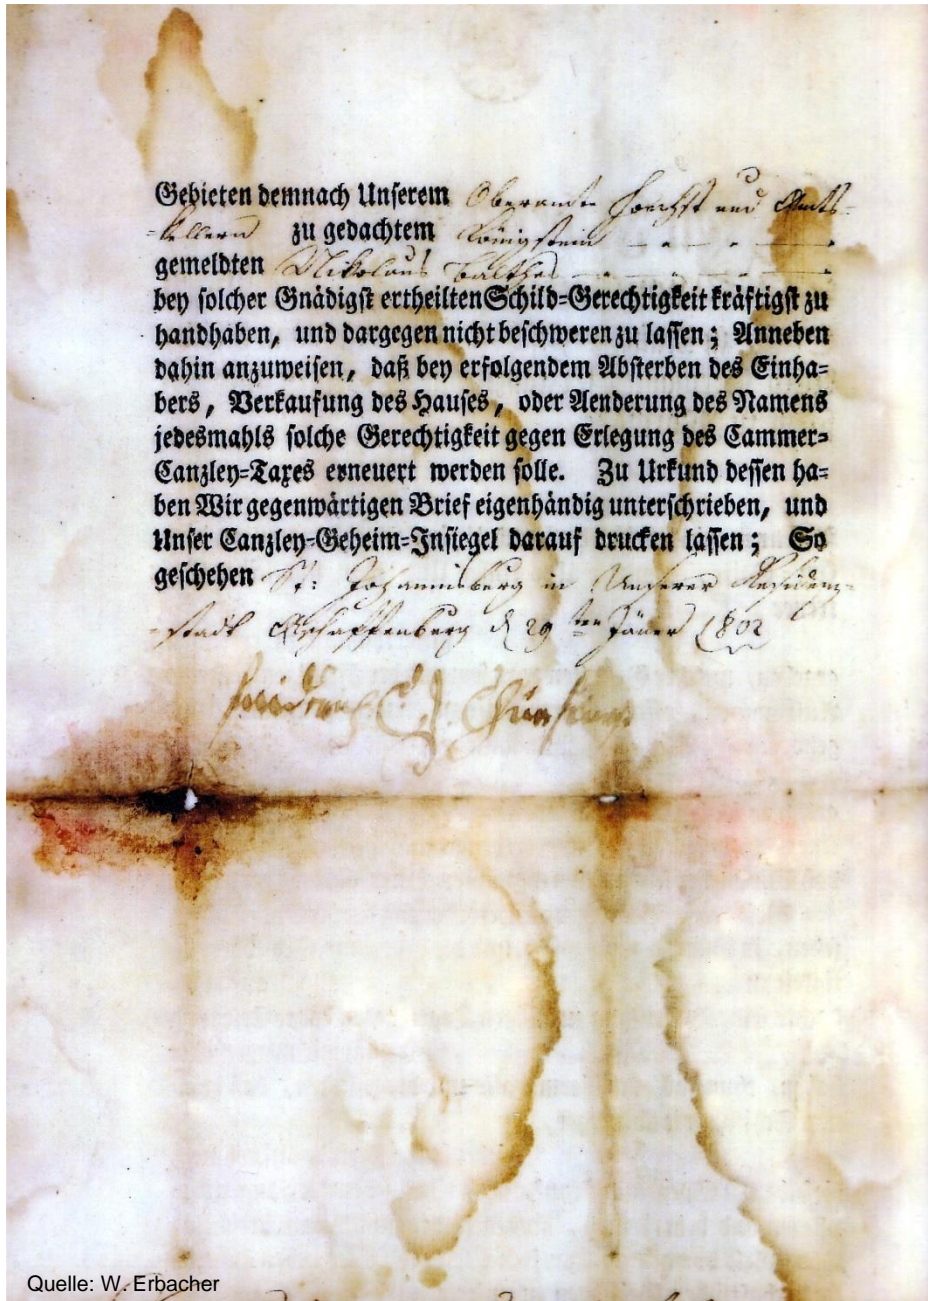 Gebieten demnach Unserem Oberamte Hoechst und Amts-
-kellern zu gedachtem Königstein
gemeldten Nikolaus Balthes
bey solcher Gnädigst ertheilten Schild=Gerechtigkeit kräftigst zu
handhaben, und dargegen nicht beschweren zu lassen; Anneben
dahin anzuweisen, daß bey erfolgendem Absterben des Einha=
bers, Verkaufung des Hauses, oder Aenderung des Namens
jedesmahls solche Gerechtigkeit gegen Erlegung des Cammer=
Canzley=Taxes erneuert werden solle. Zu Urkund dessen ha=
ben Wir gegenwärtigen Brief eigenhändig unterschrieben, und
Unser Canzley=Geheim=Insiegel darauf drucken lassen; So
geschehen St: Johannisberg in Unserer Residenz-
-stadt Aschaffenburg d 29ten Jäner 1802
Quelle: W. Erbacher